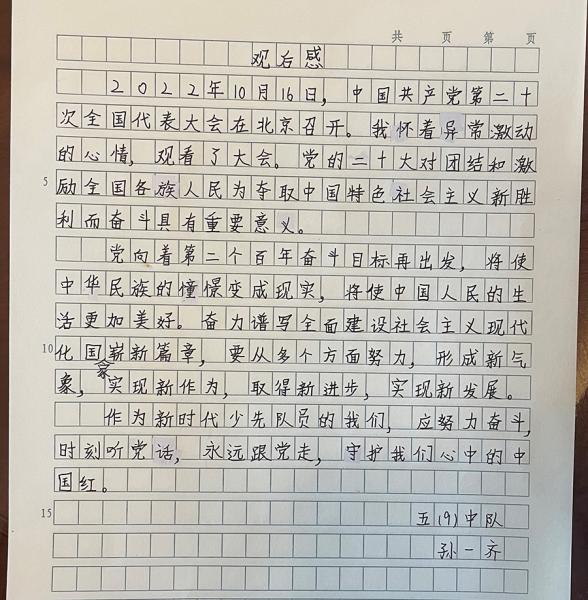 共 页 第 页
观后感
2022年10月16日，中国共产党第二十
次全国代表大会在北京召开。我怀着异常激动
的心情，观看了大会。党的二十大对团结和激
5 励全国各族人民为夺取中国特色社会主义新胜
利而奋斗具有重要意义。
党向着第二个百年奋斗目标再出发，将使
中华民族的憧憬变成现实，将使中国人民的生
活更加美好。奋力谱写全面建设社会主义现代
10 化国家崭新篇章，要从多个方面努力，形成新气
象，实现新作为，取得新进步，实现新发展。
作为新时代少先队员的我们，应努力奋斗，
时刻听党话，永远跟党走，守护我们心中的中
国红。
15 五(9)中队
孙一齐